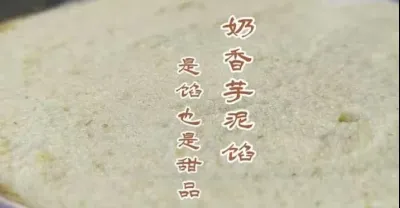 奶香芋泥馅
是馅也是甜品